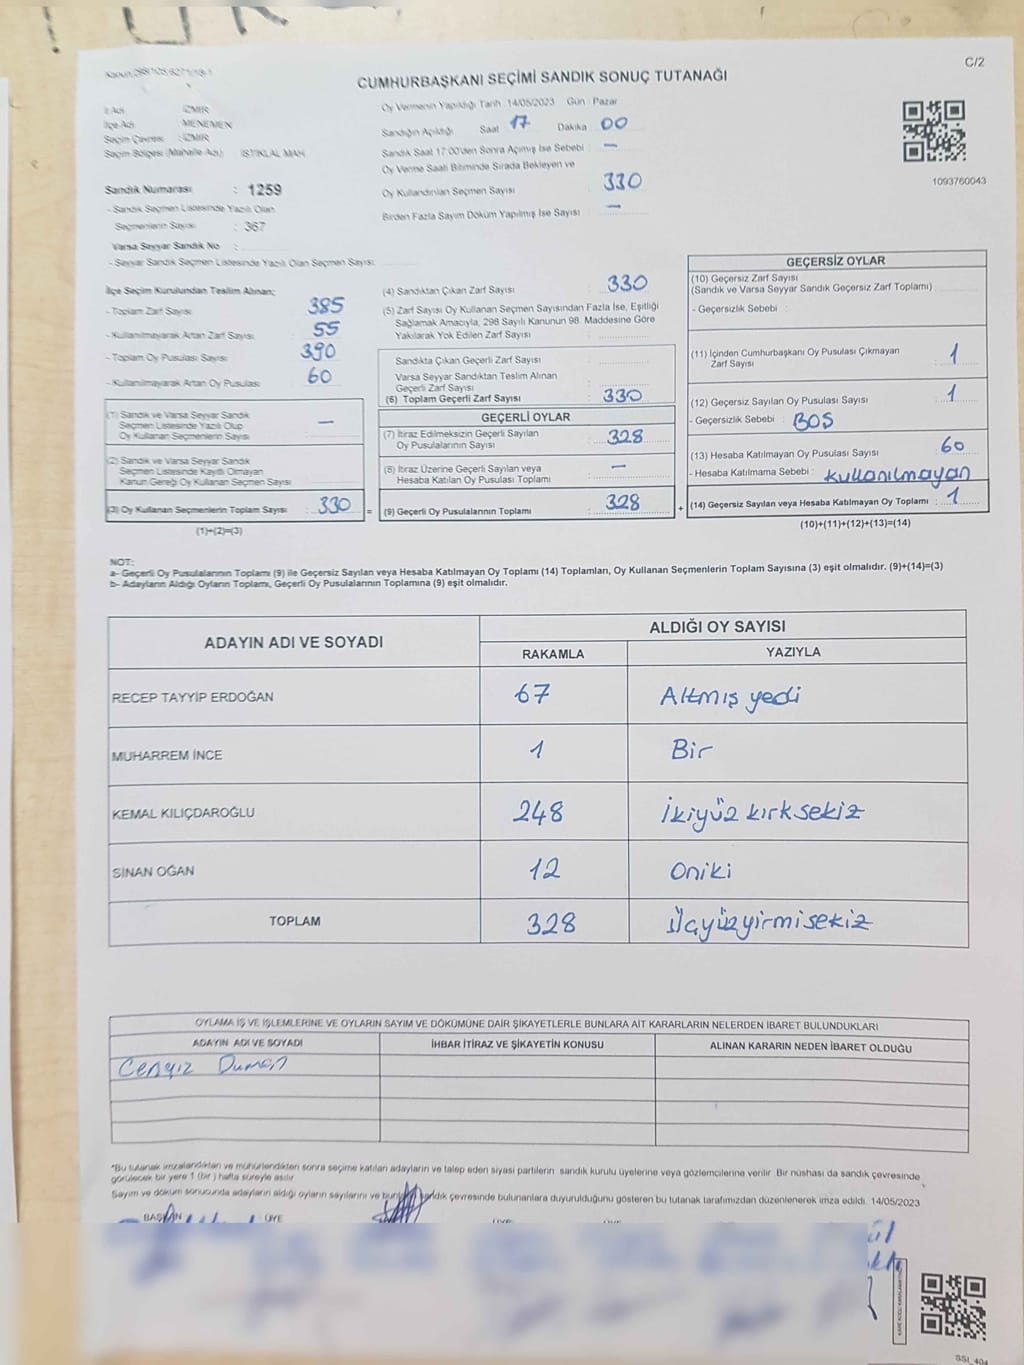 Kanun:298/105,6271/18-1
C/2
CUMHURBAŞKANI SEÇİMİ SANDIK SONUÇ TUTANAĞI
İl Adı : İZMİR
İlçe Adı : MENEMEN
Seçim Çevresi : İZMİR
Seçim Bölgesi (Mahalle Adı) : İSTİKLAL MAH
Sandık Numarası : 1259
- Sandık Seçmen Listesinde Yazılı Olan
Seçmenlerin Sayısı : 367
Varsa Seyyar Sandık No :
- Seyyar Sandık Seçmen Listesinde Yazılı Olan Seçmen Sayısı:
Oy Vermenin Yapıldığı Tarih 14/05/2023 Gün : Pazar
Sandığın Açıldığı Saat 17 Dakika 00
Sandık Saat 17:00'den Sonra Açımış İse Sebebi : —
Oy Verme Saati Bitiminde Sırada Bekleyen ve
Oy Kullandırılan Seçmen Sayısı : 330
Birden Fazla Sayım Döküm Yapılmış İse Sayısı : —
1093760043
İlçe Seçim Kurulundan Teslim Alınan;
- Toplam Zarf Sayısı : 385
- Kullanılmayarak Artan Zarf Sayısı : 55
- Toplam Oy Pusulası Sayısı : 390
- Kullanılmayarak Artan Oy Pusulası : 60
(1) Sandık ve Varsa Seyyar Sandık
Seçmen Listesinde Yazılı Olup
Oy Kullanan Seçmenlerin Sayısı : —
(2) Sandık ve Varsa Seyyar Sandık
Seçmen Listesinde Kayıtlı Olmayan
Kanun Gereği Oy Kullanan Seçmen Sayısı :
(3) Oy Kullanan Seçmenlerin Toplam Sayısı : 330 =
(1)+(2)=(3)
(4) Sandıktan Çıkan Zarf Sayısı : 330
(5) Zarf Sayısı Oy Kullanan Seçmen Sayısından Fazla İse, Eşitliği
Sağlamak Amacıyla, 298 Sayılı Kanunun 98. Maddesine Göre
Yakılarak Yok Edilen Zarf Sayısı :
Sandıkta Çıkan Geçerli Zarf Sayısı :
Varsa Seyyar Sandıktan Teslim Alınan
Geçerli Zarf Sayısı :
(6) Toplam Geçerli Zarf Sayısı : 330
GEÇERLİ OYLAR
(7) İtiraz Edilmeksizin Geçerli Sayılan
Oy Pusulalarının Sayısı : 328
(8) İtiraz Üzerine Geçerli Sayılan veya
Hesaba Katılan Oy Pusulası Toplamı : —
(9) Geçerli Oy Pusulalarının Toplamı : 328 +
GEÇERSİZ OYLAR
(10) Geçersiz Zarf Sayısı
(Sandık ve Varsa Seyyar Sandık Geçersiz Zarf Toplamı) :
- Geçersizlik Sebebi :
(11) İçinden Cumhurbaşkanı Oy Pusulası Çıkmayan
Zarf Sayısı : 1
(12) Geçersiz Sayılan Oy Pusulası Sayısı : 1
- Geçersizlik Sebebi : BOS
(13) Hesaba Katılmayan Oy Pusulası Sayısı : 60
- Hesaba Katılmama Sebebi : kullanılmayan
(14) Geçersiz Sayılan veya Hesaba Katılmayan Oy Toplamı : 1
(10)+(11)+(12)+(13)=(14)
NOT:
a- Geçerli Oy Pusulalarının Toplamı (9) ile Geçersiz Sayılan veya Hesaba Katılmayan Oy Toplamı (14) Toplamları, Oy Kullanan Seçmenlerin Toplam Sayısına (3) eşit olmalıdır. (9)+(14)=(3)
b- Adayların Aldığı Oyların Toplamı, Geçerli Oy Pusulalarının Toplamına (9) eşit olmalıdır.
ADAYIN ADI VE SOYADI
ALDIĞI OY SAYISI
RAKAMLA YAZIYLA
RECEP TAYYİP ERDOĞAN 67 Altmış yedi
MUHARREM İNCE 1 Bir
KEMAL KILIÇDAROĞLU 248 İkiyüz kırksekiz
SİNAN OĞAN 12 Oniki
TOPLAM 328 Üçyüzyirmisekiz
OYLAMA İŞ VE İŞLEMLERİNE VE OYLARIN SAYIM VE DÖKÜMÜNE DAİR ŞİKAYETLERLE BUNLARA AİT KARARLARIN NELERDEN İBARET BULUNDUKLARI
ADAYIN ADI VE SOYADI İHBAR İTİRAZ VE ŞİKAYETİN KONUSU ALINAN KARARIN NEDEN İBARET OLDUĞU
Cengiz Duman
*Bu tutanak imzalandıktan ve mühürlendikten sonra seçime katılan adayların ve talep eden siyasi partilerin sandık kurulu üyelerine veya gözlemcilerine verilir. Bir nüshası da sandık çevresinde
görülecek bir yere 1 (bir) hafta süreyle asılır.
Sayım ve döküm sonucunda adayların aldığı oyların sayılarını ve sandık çevresinde bulunanlara duyurulduğunu gösteren bu tutanak tarafımızdan düzenlenerek imza edildi. 14/05/2023
BAŞKAN ÜYE
SSI_404